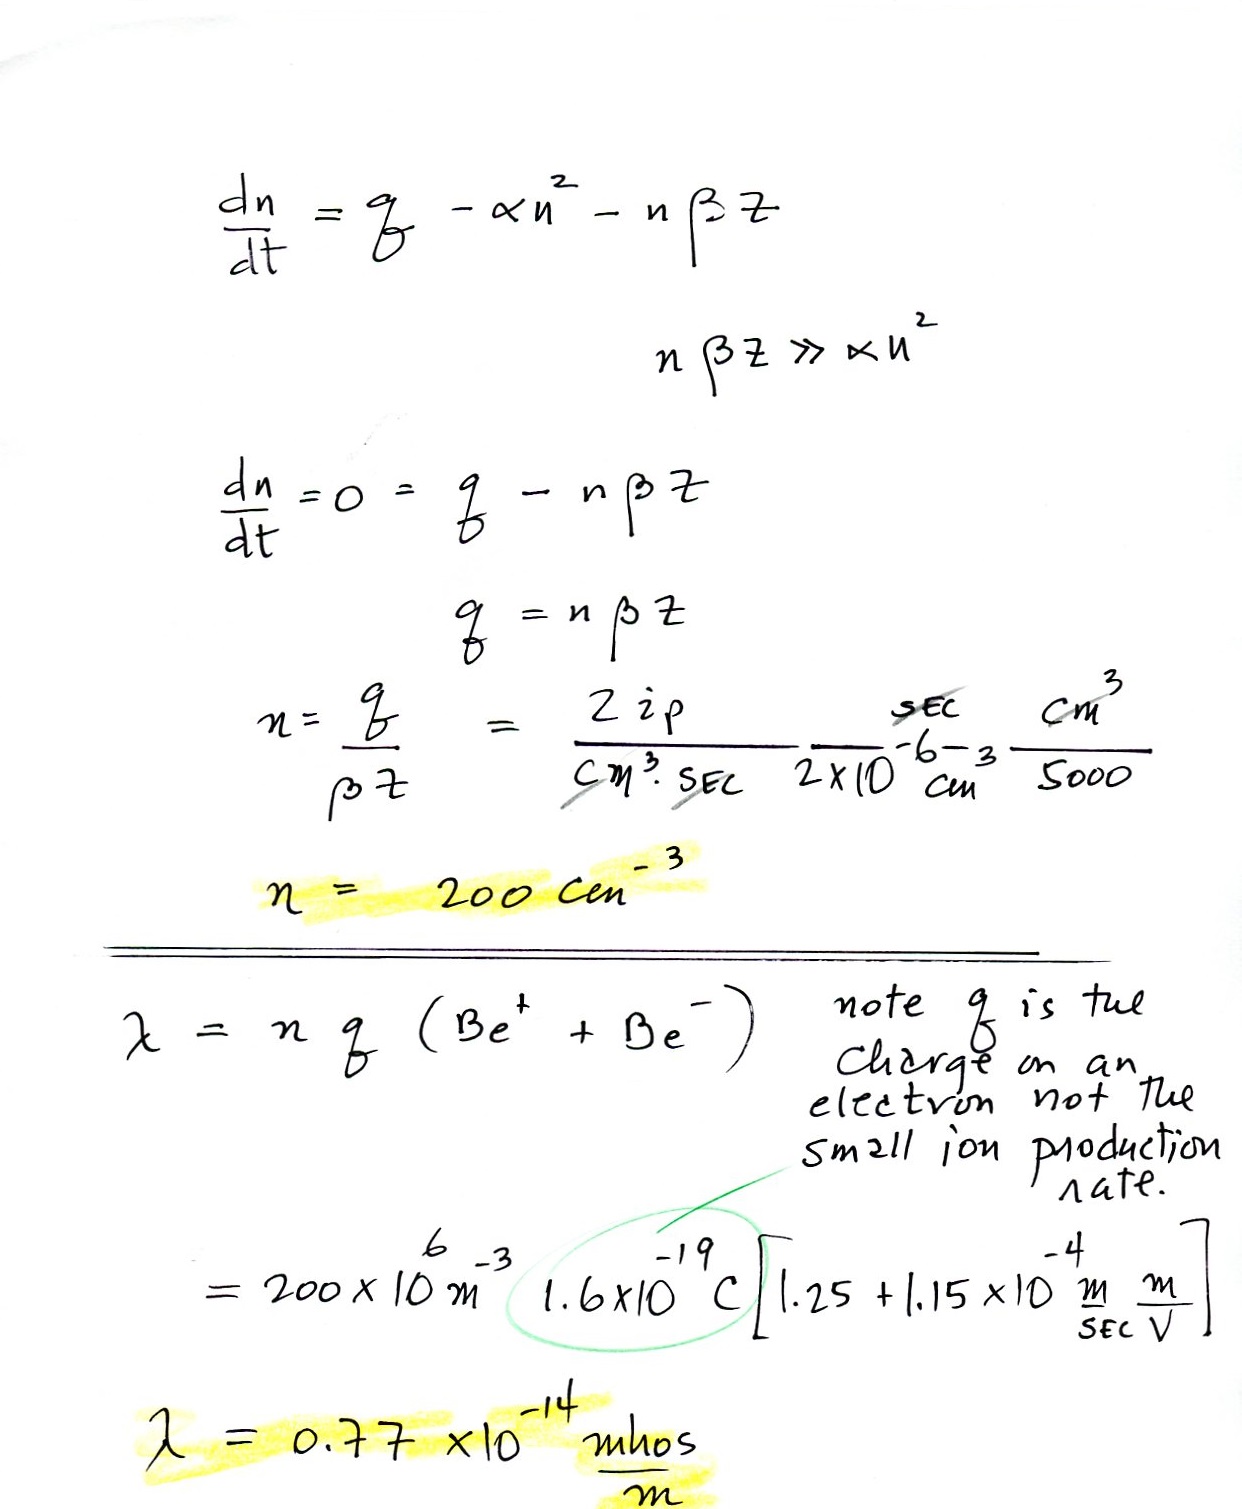 dn/dt = q - αn² - nβZ
nβZ >> αn²
dn/dt = 0 = q - nβZ
q = nβZ
n = q/βZ = 2 ip/cm³·SEC SEC/2×10⁻⁶ cm³ cm³/5000
n = 200 cm⁻³
λ = n q (Be⁺ + Be⁻)
note q is the
charge on an
electron not the
small ion production
rate.
= 200 × 10⁶ m⁻³ 1.6×10⁻¹⁹ C [1.25 + 1.15 × 10⁻⁴ m/SEC m/V]
λ = 0.77 × 10⁻¹⁴ mhos/m